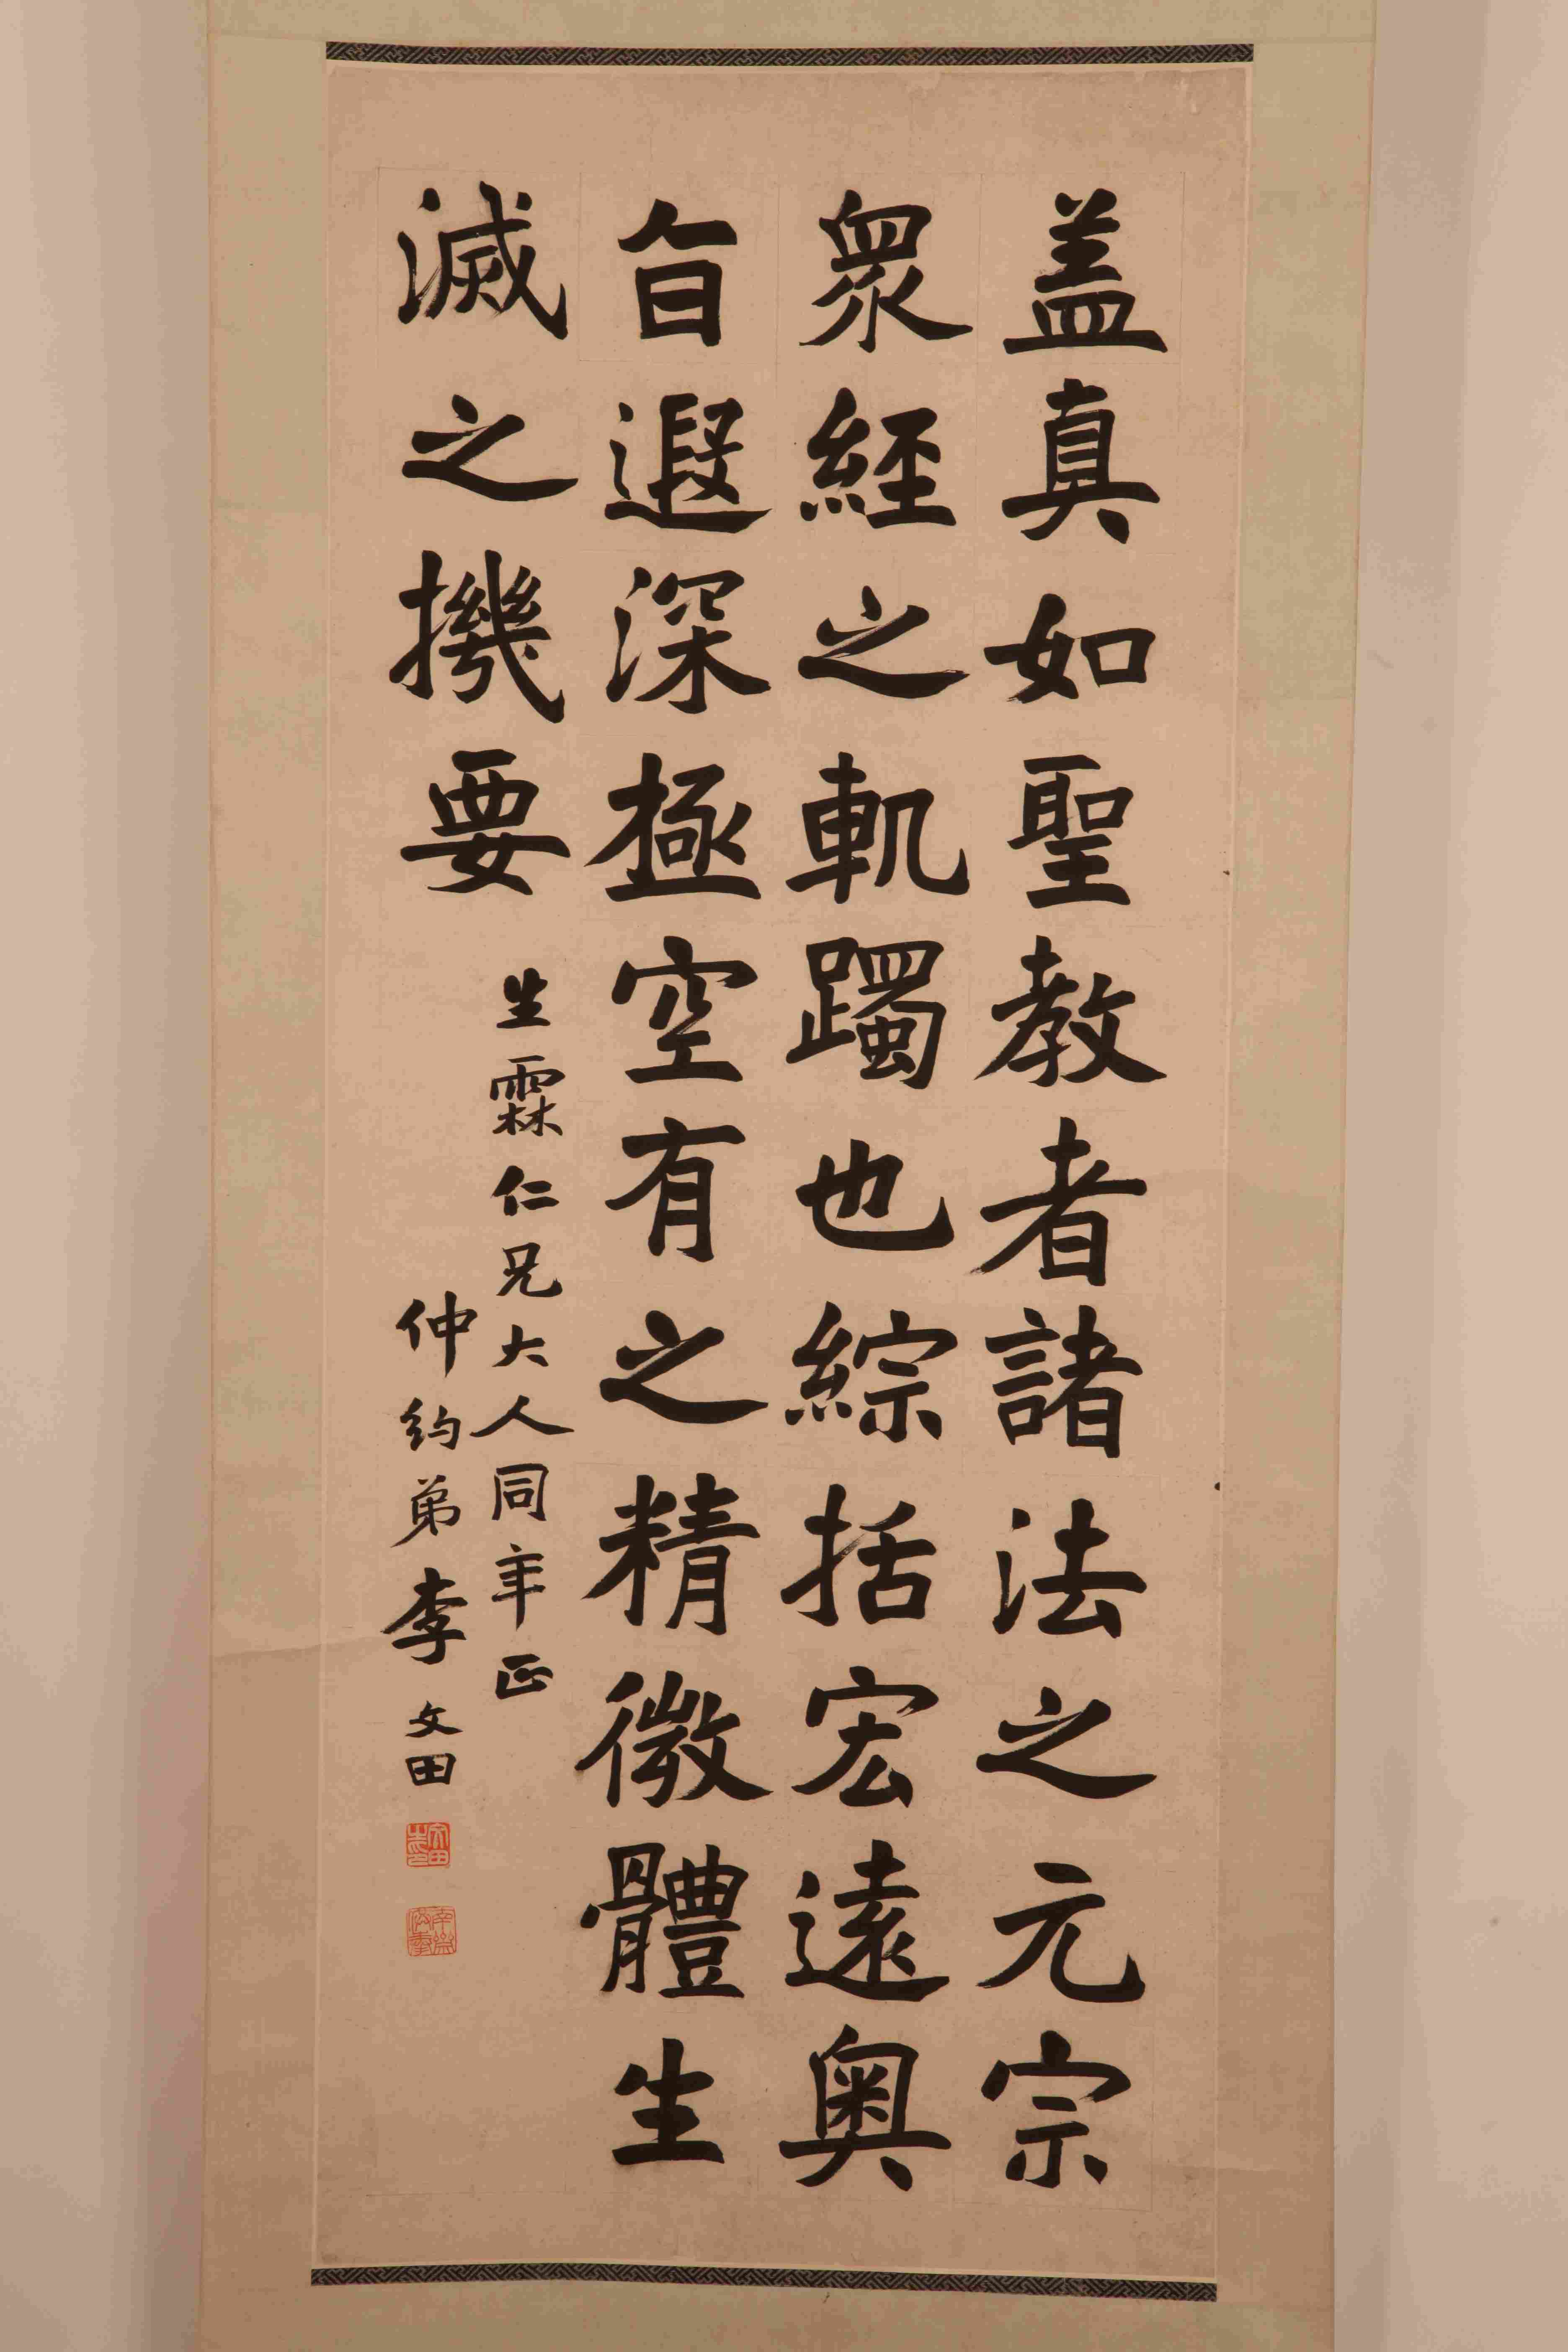 盖真如聖教者諸法之元宗
衆經之軌躅也綜括宏遠奧
旨遐深極空有之精微體生
滅之機要
生霖仁兄大人同年正
仲約弟李文田